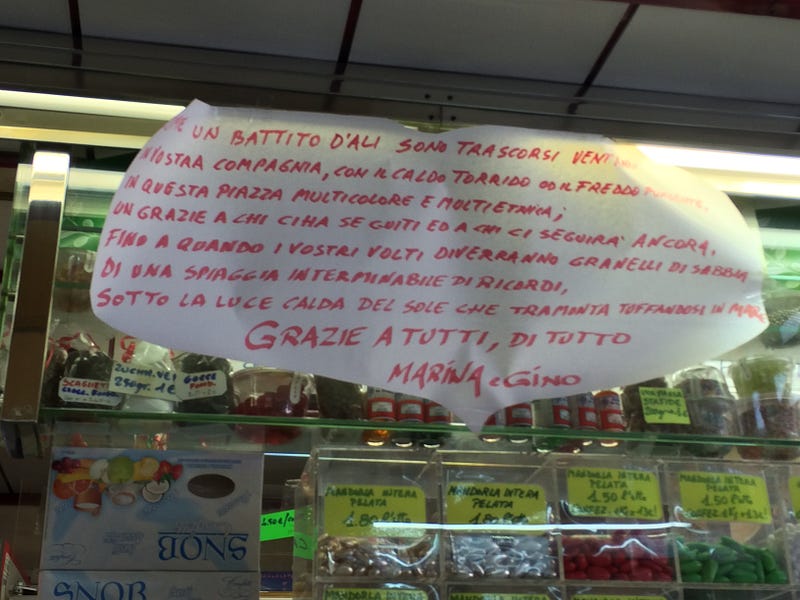 UN BATTITO D'ALI SONO TRASCORSI
VOSTRA COMPAGNIA, CON IL CALDO TORRIDO OD IL FREDDO PUNGENTE,
IN QUESTA PIAZZA MULTICOLORE E MULTIETNICA;
UN GRAZIE A CHI CI HA SEGUITI ED A CHI CI SEGUIRA' ANCORA,
FINO A QUANDO I VOSTRI VOLTI DIVERRANNO GRANELLI DI SABBIA
DI UNA SPIAGGIA INTERMINABILE DI RICORDI,
SOTTO LA LUCE CALDA DEL SOLE CHE TRAMONTA TUFFANDOSI IN MARE
GRAZIE A TUTTI, DI TUTTO
MARINA e GINO
SCAGLIETTE
CIOCC. FOND.
ZUCCH. VE
250gr. 1€
GOCCE
FOND.
UVA PASSA
STAFIDE
MANDORLA INTERA
PELATA
1.80 l'etto
MANDORLA INTERA
PELATA
1.80 l'etto
MANDORLA INTERA
PELATA
1.50 l'etto
MANDORLA INTERA
PELATA
1.50 l'etto
SNOB
SNOB